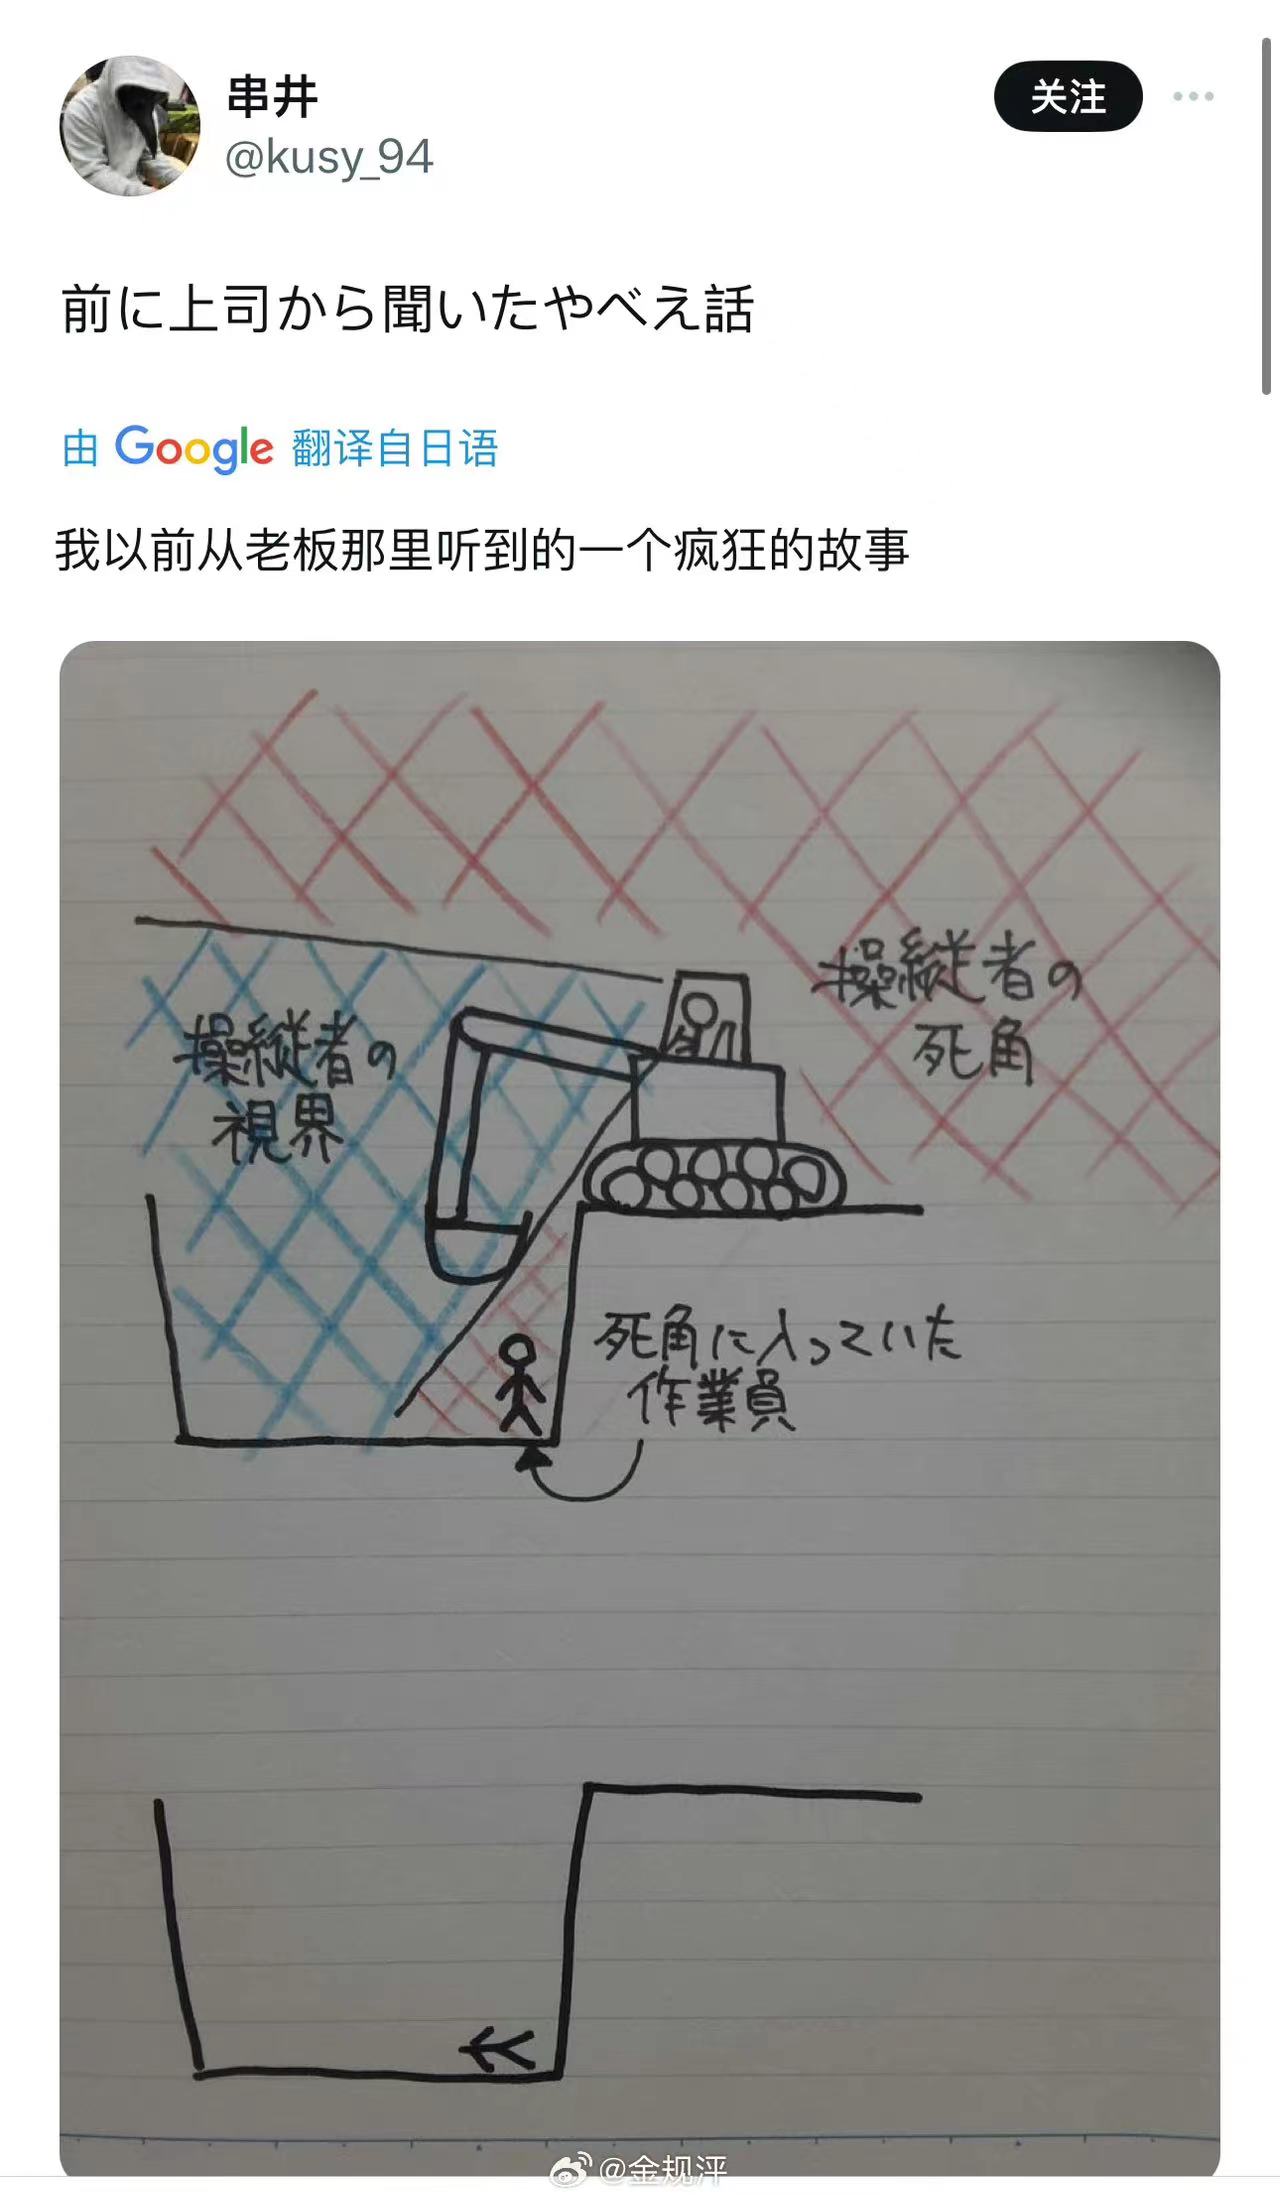 串井
关注
@kusy_94
前に上司から聞いたやべえ話
由 Google 翻译自日语
我以前从老板那里听到的一个疯狂的故事
操縦者の
死角
操縦者の
視界
死角に入っていた
作業員
@金规泙